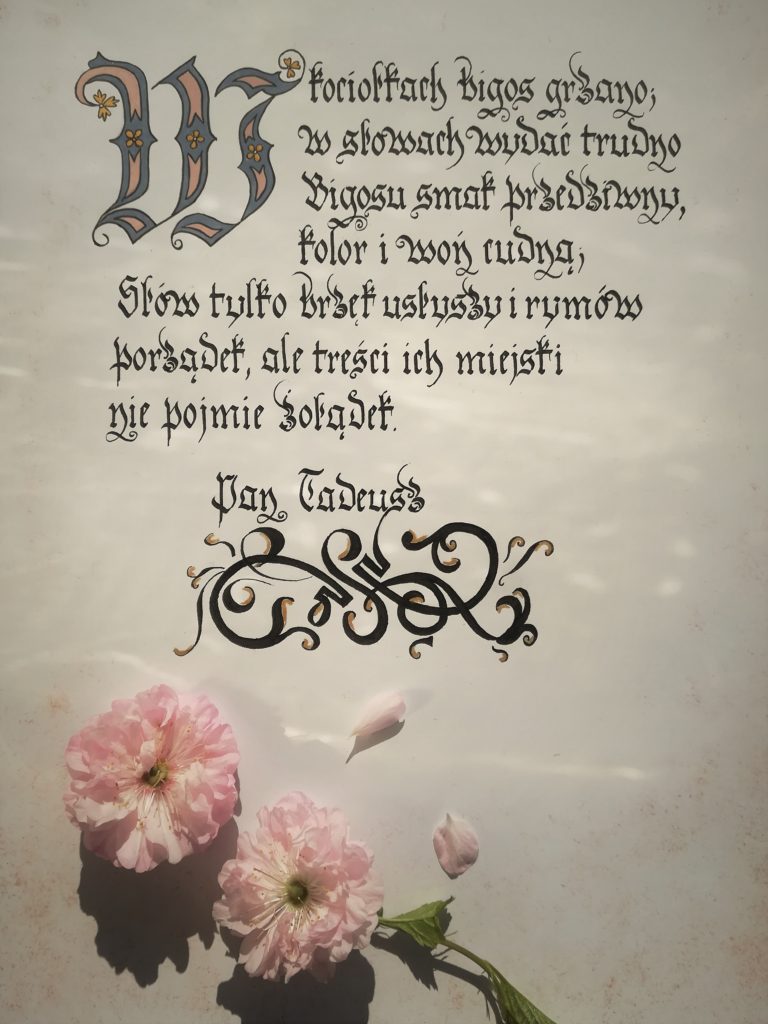 W kociołkach bigos grzano;
w słowach wydać trudno
Bigosu smak przedziwny,
kolor i woń cudną;
Słów tylko brzęk usłyszy i rymów
porządek, ale treści ich miejski
nie pojmie żołądek.
Pan Tadeusz